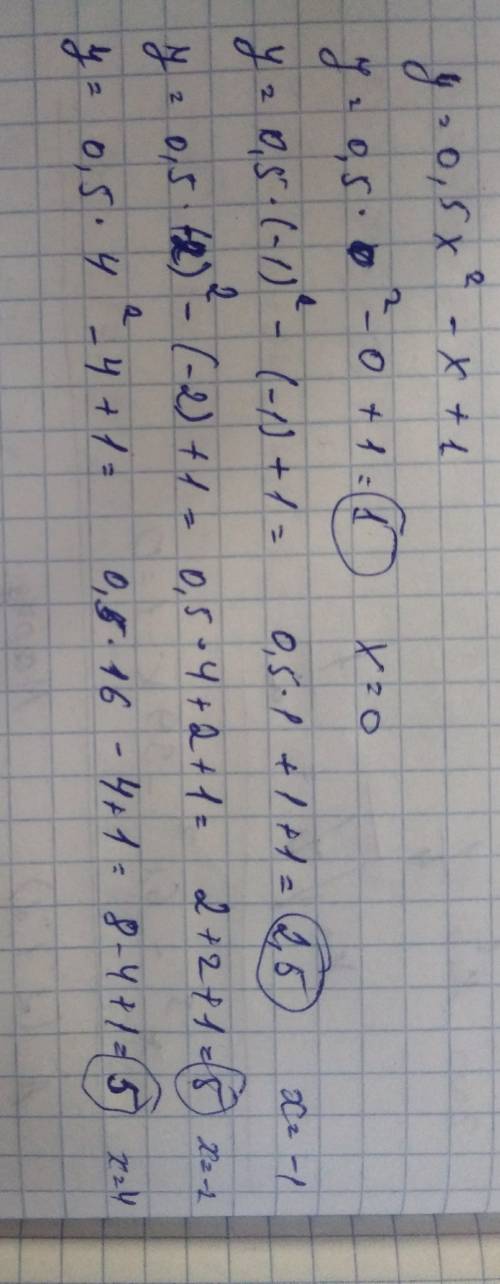 y = 0,5x² - x + 1
y = 0,5 · 0² - 0 + 1 = 1 x = 0
y = 0,5 · (-1)² - (-1) + 1 = 0,5 · 1 + 1 + 1 = 2,5 x = -1
y = 0,5 · (-2)² - (-2) + 1 = 0,5 · 4 + 2 + 1 = 2 + 2 + 1 = 5 x = -2
y = 0,5 · 4² - 4 + 1 = 0,5 · 16 - 4 + 1 = 8 - 4 + 1 = 5 x = 4